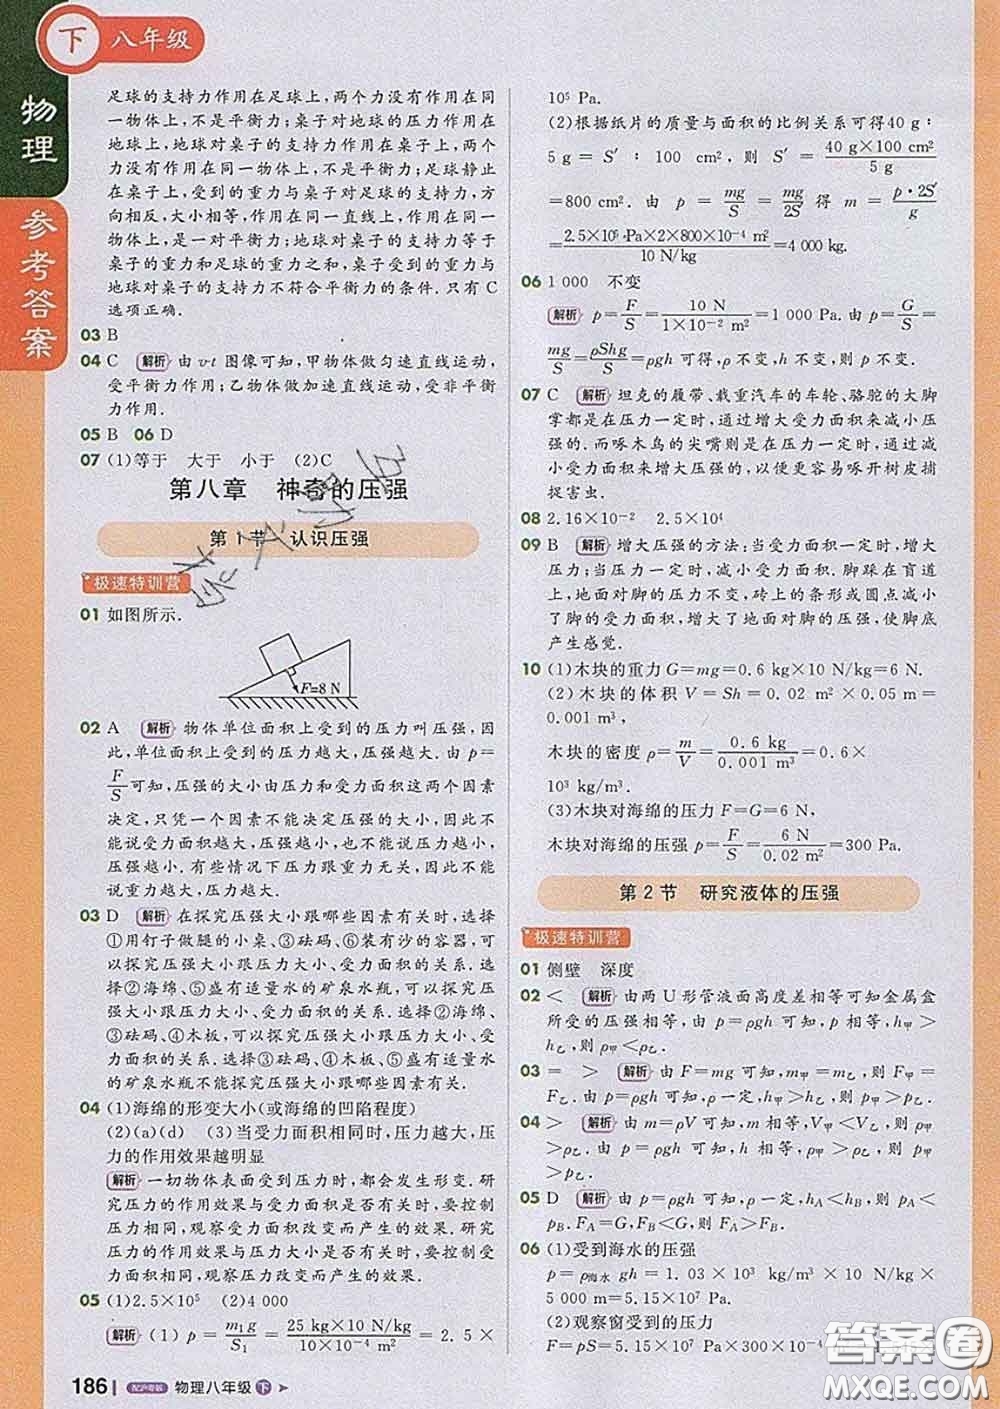 下 八年级
物理
参考答案
足球的支持力作用在足球上,两个力没有作用在同
一物体上,不是平衡力;桌子对地球的压力作用在
地球上,地球对桌子的支持力作用在桌子上,两个
力没有作用在同一物体上,不是平衡力;足球静止
在桌子上,受到的重力与桌子对足球的支持力,方
向相反,大小相等,作用在同一直线上,作用在同一
物体上,是一对平衡力;地球对桌子的支持力等于
桌子的重力和足球的重力之和,桌子受到的重力与
地球对桌子的支持力不符合平衡力的条件.只有C
选项正确.
03 B
04 C 解析 由 v-t 图像可知,甲物体做匀速直线运动,
受平衡力作用;乙物体做加速直线运动,受非平衡
力作用.
05 B 06 D
07 (1)等于 大于 小于 (2)C
第八章 神奇的压强
第1节 认识压强
极速特训营
01 如图所示.
F=8 N
02 A 解析 物体单位面积上受到的压力叫压强,因
此,单位面积上受到的压力越大,压强越大.由 p=
F/S 可知,压强的大小由压力和受力面积两个因素
决定,只凭一个因素不能决定压强的大小,因此不
能说受力面积越大,压强越小,也不能说压力越小,
压强越小.有些情况下压力跟重力无关,因此不能
说重力越大,压强越大.
03 D 解析 在探究压强大小跟哪些因素有关时,选择
①用钉子做腿的小桌、③砝码、⑥装有沙的容器,可
以探究压强大小跟压力大小、受力面积的关系.选
择②海绵、⑤盛有适量水的矿泉水瓶,可以探究压强
大小跟压力大小、受力面积的关系.选择②海绵、
③砝码、④木板,可以探究压强大小跟压力大小、受
力面积的关系.选择③砝码、④木板、⑤盛有适量水
的矿泉水瓶不能探究压强大小跟哪些因素有关.
04 (1)海绵的形变大小(或海绵的凹陷程度)
(2)(a)(d) (3)当受力面积相同时,压力越大,压
力的作用效果越明显
解析 一切物体表面受到压力时,都会发生形变.研
究压力的作用效果与受力面积是否有关时,要控制
压力相同,观察受力面积改变而产生的效果.研究
压力的作用效果与压力大小是否有关时,要控制受
力面积相同,观察压力改变而产生的效果.
05 (1)2.5×10⁵ (2)4 000
解析 (1) p = m₁g/S₁ = 25 kg×10 N/kg/10×10⁻⁴ m² = 2.5×
186 配沪粤版 物理八年级 下
10⁵ Pa.
(2)根据纸片的质量与面积的比例关系可得40 g:
5 g = S′ : 100 cm²,则 S′ = 40 g×100 cm²/5 g
=800 cm².由 p = mg/S = mg/2S′ 得 m = p·2S′/g
= 2.5×10⁵ Pa×2×800×10⁻⁴ m²/10 N/kg =4 000 kg.
06 1 000 不变
解析 p= F/S = 10 N/1×10⁻² m² =1 000 Pa.由 p= G/S =
mg/S = ρShg/S =ρgh 可得,ρ 不变,h 不变,则 p 不变.
07 C 解析 坦克的履带、载重汽车的车轮、骆驼的大脚
掌都是在压力一定时,通过增大受力面积来减小压
强的.而啄木鸟的尖嘴则是在压力一定时,通过减
小受力面积来增大压强的,以便更容易啄开树皮捕
捉害虫.
08 2.16×10⁻² 2.5×10⁴
09 B 解析 增大压强的方法:当受力面积一定时,增大
压力;当压力一定时,减小受力面积.脚踩在盲道
上,地面对脚的压力不变,砖上的条形或圆点减小
了脚的受力面积,增大了地面对脚的压强,使脚底
产生感觉.
10 (1)木块的重力G=mg=0.6 kg×10 N/kg=6 N.
(2)木块的体积 V = Sh = 0.02 m² × 0.05 m =
0.001 m³,
木块的密度 ρ= m/V = 0.6 kg/0.001 m³ =0.6×
10³ kg/m³.
(3)木块对海绵的压力 F=G=6 N,
木块对海绵的压强 p= F/S = 6 N/0.02 m² =300 Pa.
第2节 研究液体的压强
极速特训营
01 侧壁 深度
02 < 解析 由两U形管液面高度差相等可知金属盒
所受的压强相等,由 p=ρgh 可知,p 相等,h甲>
h乙,则ρ甲<ρ乙.
03 = > 解析 由 F=mg 可知,m甲=m乙,则 F甲=
F乙.由 p=ρgh 可知,ρ一定,h甲>h乙,则 p甲>p乙.
04 > 解析 由 m=ρV 可知,m 相等,V甲<V乙,则ρ甲
>ρ乙.由 p=ρgh 可知,h 相等,ρ甲>ρ乙,则 p甲
>p乙.
05 D 解析 由 p=ρgh 可知,ρ一定,hA<hB,则 pA<
pB.FA=G,FB<G,则 FA>FB.
06 (1)受到海水的压强
p = ρ海水 gh = 1.03 × 10³ kg/m³ × 10 N/kg ×
5 000 m=5.15×10⁷ Pa.
(2)观察窗受到的压力
F=pS=5.15×10⁷ Pa×300×10⁻⁴
答案圈
MXQE.COM